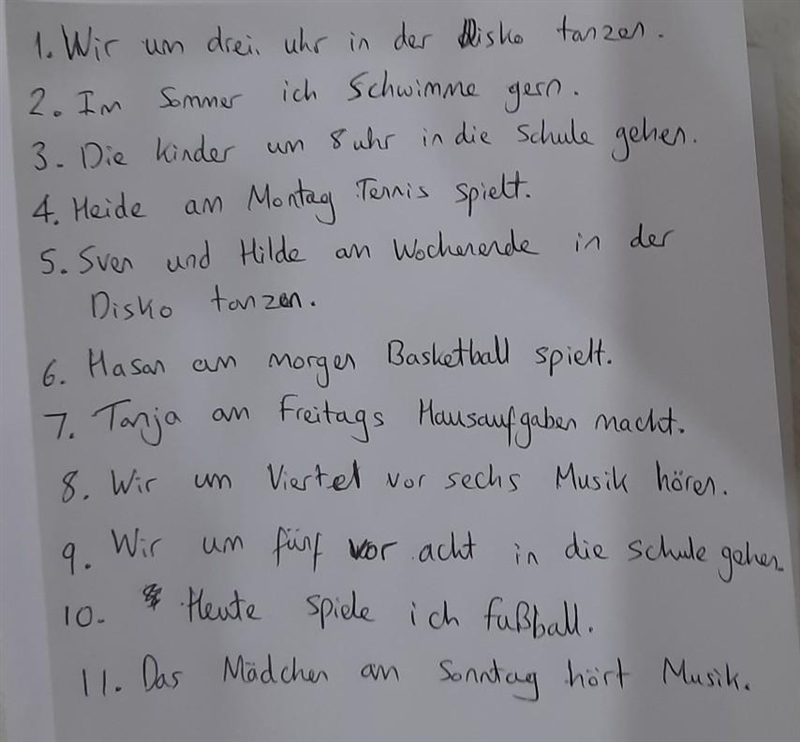 1. Wir um drei. uhr in der Disko tanzen.
2. Im Sommer ich Schwimme gern.
3. Die kinder um 8 uhr in die Schule gehen.
4. Heide am Montag Tennis spielt.
5. Sven und Hilde am Wochenende in der
Disko tanzen.
6. Hasan am morgen Basketball spielt.
7. Tanja am Freitags Hausaufgaben macht.
8. Wir um Viertel vor sechs Musik hören.
9. Wir um fünf vor acht in die schule gehen
10. Heute spiele ich fußball.
11. Das Mädchen am Sonntag hört Musik.